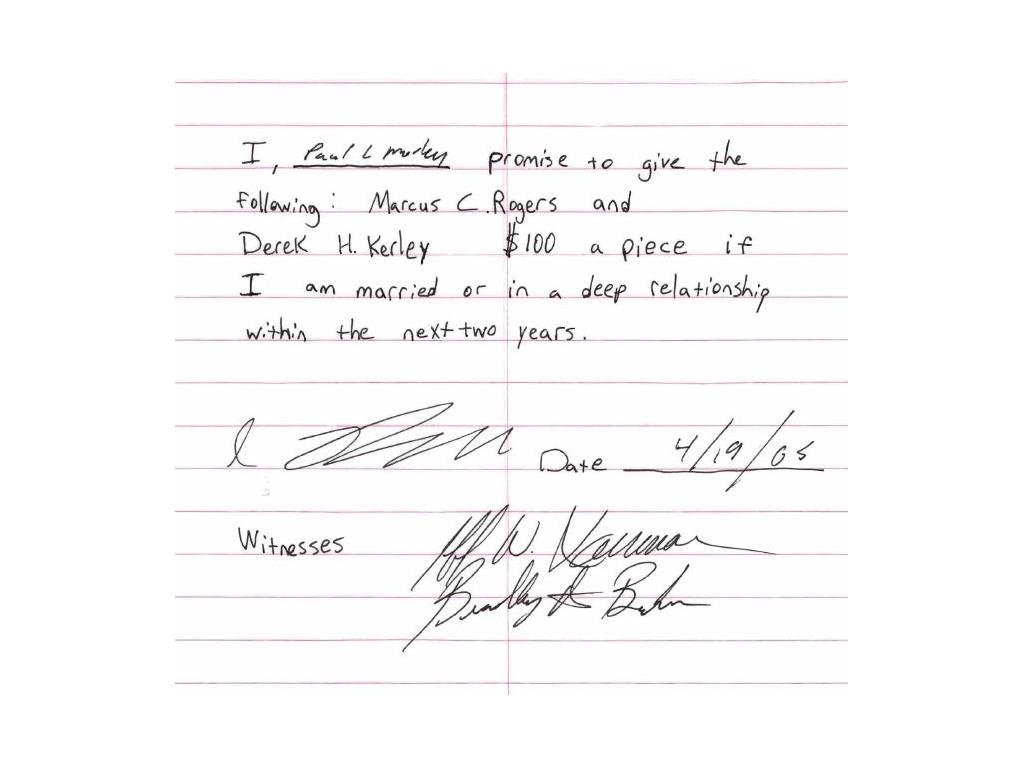 I, Paul L Morley promise to give the
following: Marcus C. Rogers and
Derek H. Kerley $100 a piece if
I am married or in a deep relationship
within the next two years.
Date 4/19/05
Witnesses
W.
Bradley